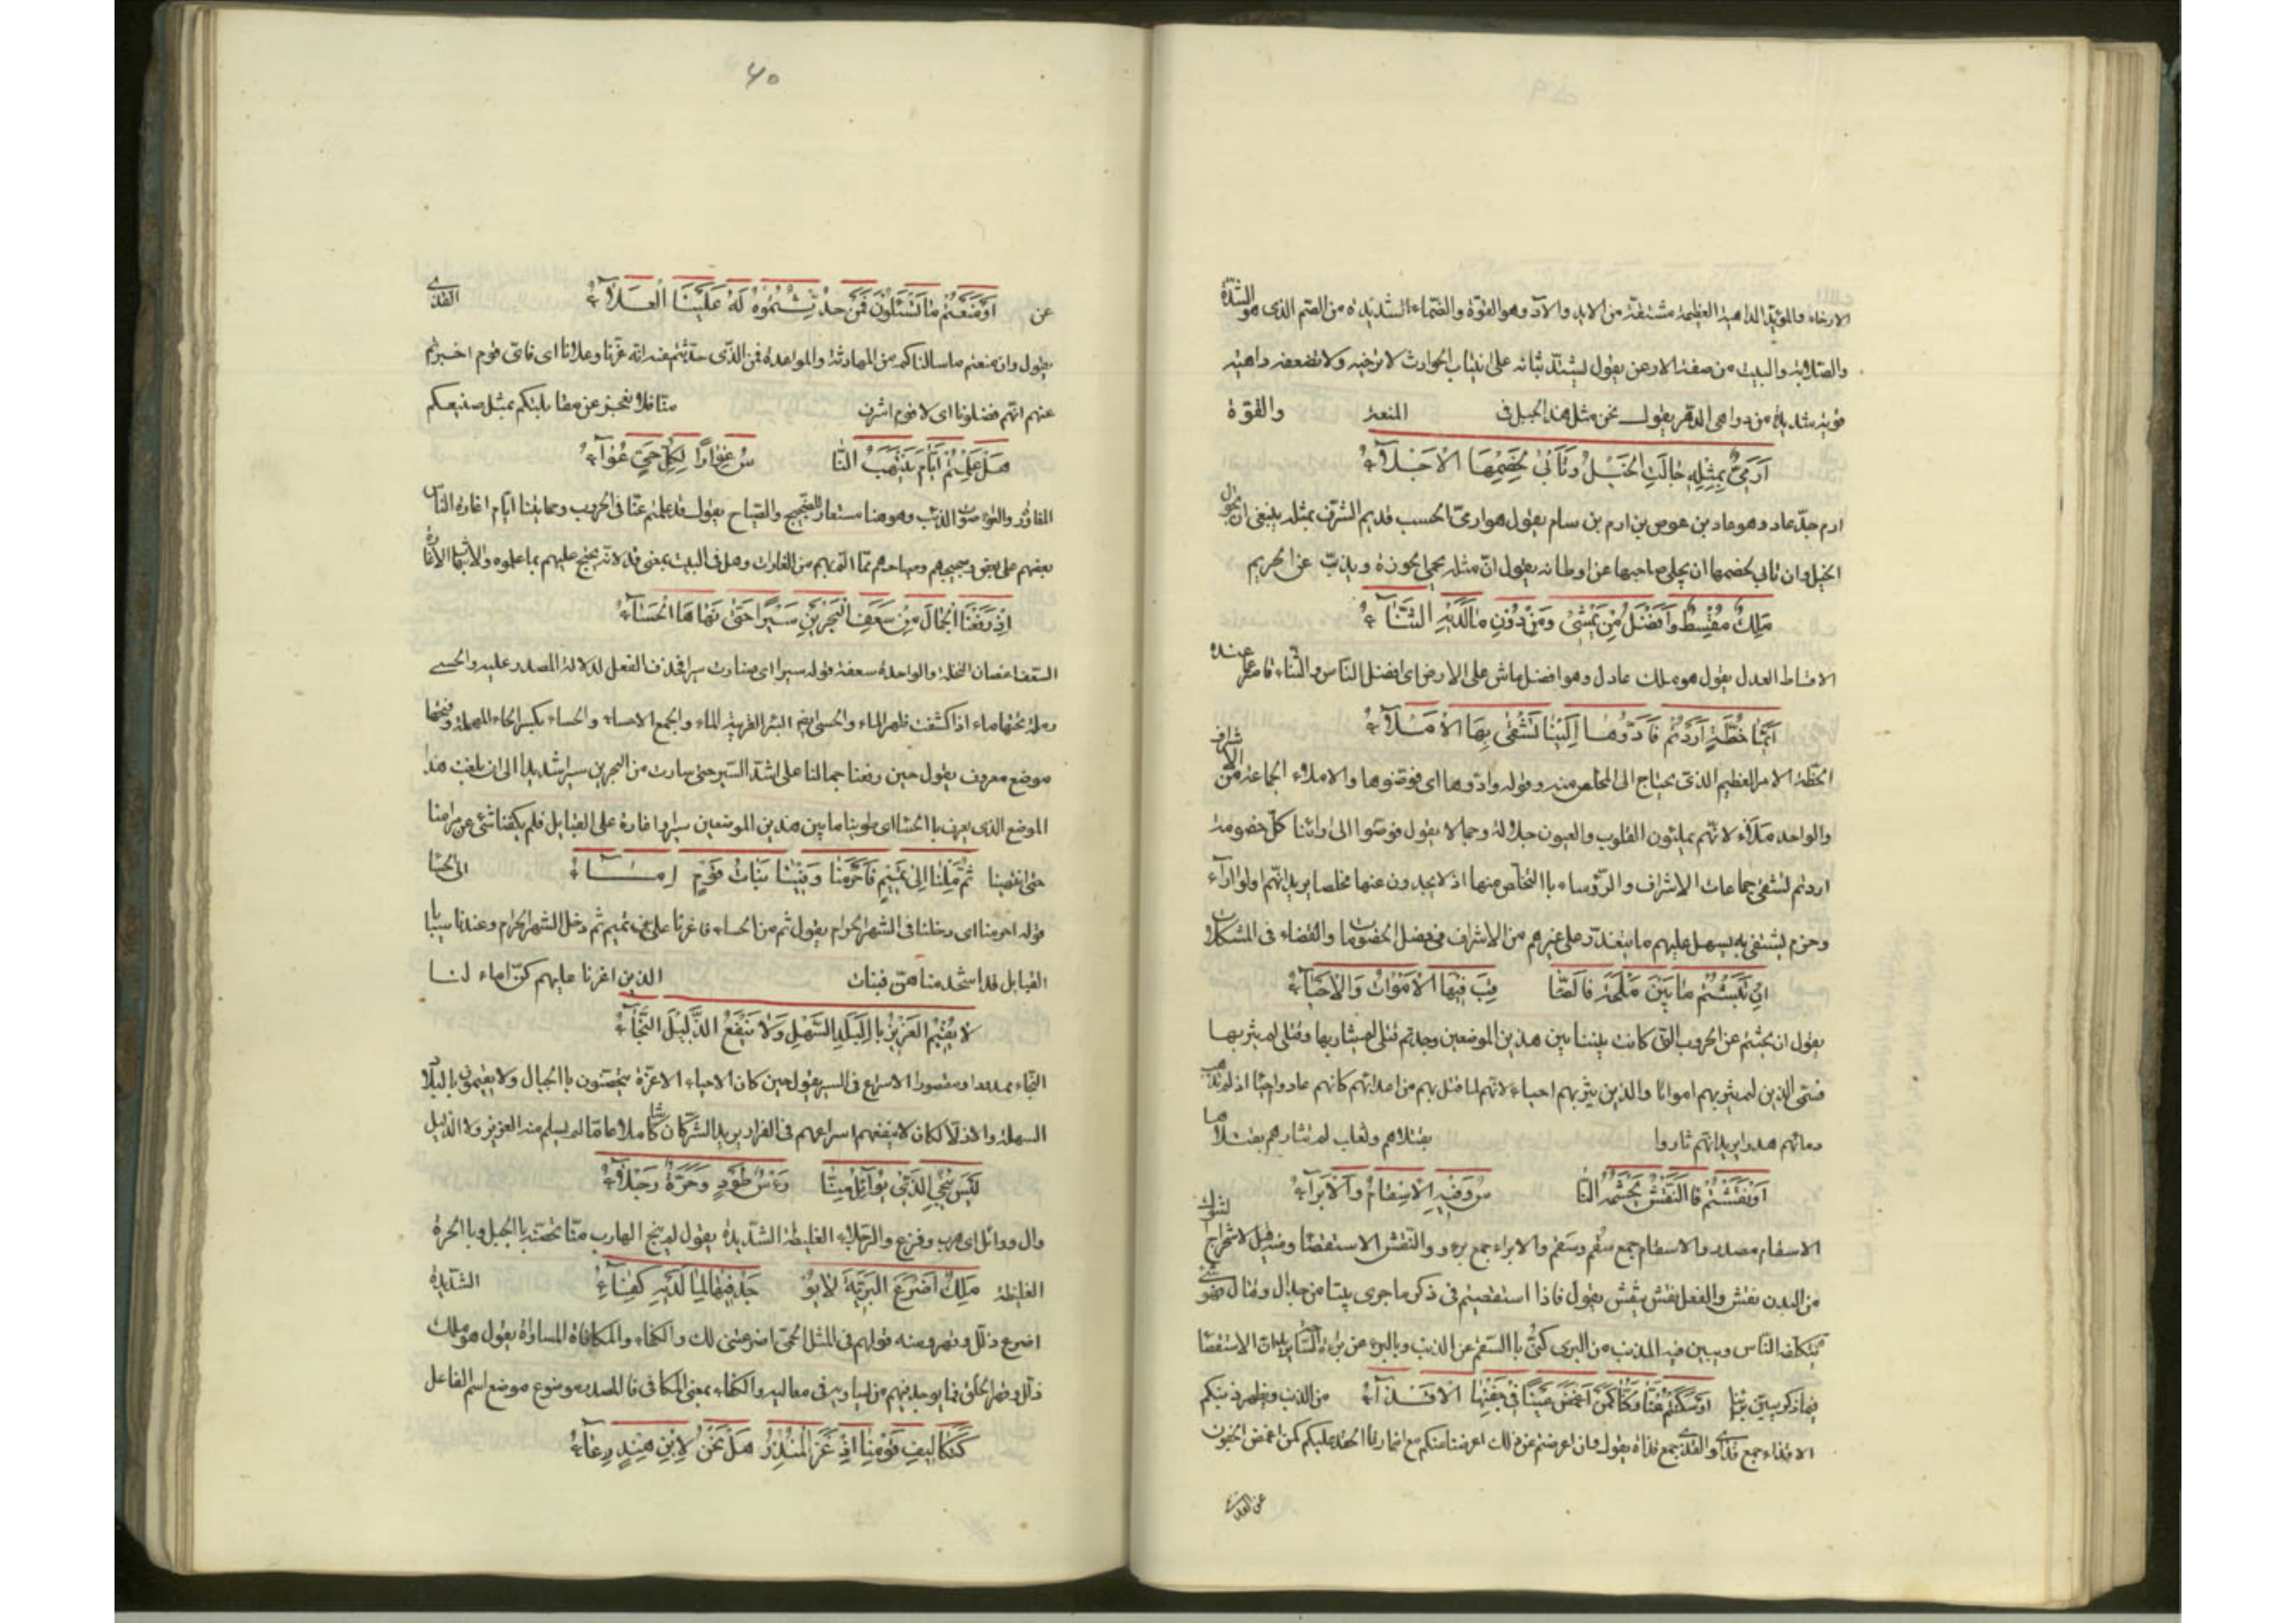 الارخاء والمؤيد الداهية العظيمة مشتقة من الايد والآد وهو القوة والصماء الشديدة من الصمم الذى هو الشدة
والصلابة والبيت من صفة الارعن يقول يشتد ثباته على انتياب الحوادث لا ترخيه ولا تضعفه داهية
قوية شديدة من دواهى الدهر يقول نحن مثل هذا الجبل فى المنعة والقوة
اَرَمِيٌّ بِمِثْلِهِ جَالَتِ الْخَيْلُ وَتَأْبَىٰ لِخَصْمِهَا الْاَجْلَآءُ
ارم جد عاد وهو عاد بن عوص بن ارم بن سام يقول هو ارمى الحسب قديم الشرف بمثله ينبغى ان تجول
الخيل وان تابى لخصمها ان يجلى صاحبها عن اوطانه يقول ان مثله يحمى الحوزة ويذب عن الحريم
مَلِكٌ مُقْسِطٌ وَاَفْضَلُ مَنْ يَمْشِىْ وَمِنْ دُوْنِ مَا لَدَيْهِ الثَّنَآءُ
الاقساط العدل يقول هو ملك عادل وهو افضل ماش على الارض اى افضل الناس والثناء قاصر عما عنده
اَيُّمَا خُطَّةٍ اَرَدْتُمْ فَاَدُّوْهَا اِلَيْنَا تُشْفٰى بِهَا الْاَمْلَآءُ
الخطة الامر العظيم الذى يحتاج الى المخلص منه وقوله وادوها اى فوضوها والاملاء الجماعة من الاشراف
والواحد ملاء لانهم يملئون القلوب والعيون جلالة وجمالا يقول فوضوا الى ارائنا كل خصومة
اردتم تشفى جماعات الاشراف والرؤساء باالتخلص منها اذ لا يجدون عنها مخلصا يريد انهم اولو اراء
وحزم يشتفى به يسهل عليهم ما يتعذر على غيرهم من الاشراف فى فصل الخصومات والقضاء فى المشكلات
اِنْ نَبَشْتُمْ مَا بَيْنَ مَلْحَةَ فَالصَّا قِبَ فِيْهَا الْاَمْوَاتُ وَالْاَحْيَآءُ
يقول ان بحثتم عن الحروب التى كانت بيننا بين هذين الموضعين وجدتم قتلى لم يثار بها وقتلى لم يثر بها
فسمى الذين لم يثر بهم امواتا والذين يثر بهم احياء لانهم لما قتل بهم من اعدائهم كانهم عادوا احياء اذ لم تذهب
دمائهم هدرا يريد انهم ثاروا بقتلاهم وتغلب لم تثار هم بقتلاها
اَوْ نَقَشْتُمْ فَاالنَّقْشُ يَجْشَمُهُ النَّا سُ وَفِيْهِ الْاَسْقَامُ وَالْاَبْرَآءُ
الاسقام مصدر والاسقام جمع سُقم وسَقم والابراء جمع برء والنقش الاستقصاء ومنه قيل لاستخراج الشوك
من البدن نقش والفعل نقش ينقش يقول فاذا استقصيتم فى ذكر ما جرى بيننا من جدال وقتال فهو شىء
يتكلفه الناس ويبين فيه المذنب من البرى كنى باالسقم عن الذنب وبالبرء عن براءة الساحة يريد ان الاستقصاء
فيما ذكر يبين برئنا اَوْ سَكَتُّمْ عَنَّا فَكُنَّا كَمَنْ اَغْمَضَ عَيْنًا فِىْ جَفْنِهَا الْاَقْذَآءُ من الذنب ويظهر ذنبكم
الاقذاء جمع قذى والقذى جمع قذاة يقول وان اعرضتم عن ذلك اعرضنا عنكم مع اضمارنا الحقد عليكم كمن اغمض الجفون
عن القذى
٤٠
عن اَوْ مَنَعْتُمْ مَا تُسْئَلُوْنَ فَمَنْ حُدِّثْتُمُوْهُ لَهُ عَلَيْنَا الْعَلَآءُ القذى
يقول وان منعتم ما سالناكم من المهادنة والموادعة فمن الذى حدثتم عنه انه عزنا وعلانا اى فاى قوم اخبرتم
عنهم انهم فضلونا اى لا قوم اشرف منا فلا نعجز عن مقابلتكم بمثل صنيعكم
هَلْ عَلِمْتُمْ اَيَّامَ يُنْتَهَبُ النَّا سُ غِوَارًا لِكُلِّ حَيٍّ عُوَآءُ
المغاورة والعواء صوت الذئب وهو هنا مستعار للضجيج والصياح يقول قد علمتم غنائنا فى الحروب وحمايتنا ايام اغارة الناس
بعضهم على بعض وضجيجهم وصياحهم مما الم بهم من الغارات وهل فى البيت بمعنى قد لانه يحتج عليهم بما علموه والانتهاب الاغارة
اِذْ رَفَعْنَا الْجِمَالَ مِنْ سَعَفِ الْبَحْرَيْنِ سَيْرًا حَتّٰى نَهَاهَا الْحِسَآءُ
السعف اغصان النخلة والواحدة سعفة قوله سيرا اى صارت سيرا فحذف الفعل لدلالة المصدر عليه والحسى
رملة تحتها ماء اذا كشفت ظهر الماء والحسى ايضا البئر القريبة الماء والجمع الاحساء والحساء بكسر الحاء المهملة وضمها
موضع معروف يقول حين رفعنا جمالنا على اشد السير حتى سارت من البحرين سيرا شديدا الى ان بلغت هذا
الموضع الذى يعرف باالحساء اى طوينا ما بين هذين الموضعين سيرا واغارة على القبايل فلم يكفنا شئ عن مرامنا
حتى انتهينا ثُمَّ مِلْنَا اِلٰى تَمِيْمٍ فَاَحْرَمْنَا وَفِيْنَا بَنَاتُ قَوْمٍ اِمَآءُ الى الحسا
قوله احرمنا اى دخلنا فى الشهر الحرام يقول ثم من الحساء فاغرنا على بنى تميم ثم دخل الشهر الحرام وعندنا سبايا
القبايل قد استخدمناهن فبنات الذين اغرنا عليهم كن اماء لنا
لَا يُقِيْمُ الْعَزِيْزُ بِاالْبَلَدِ السَّهْلِ وَلَا يَنْفَعُ الذَّلِيْلَ النَّجَآءُ
النجاء ممدودا ومقصورا الاسراع فى السير يقول حين كان الاحياء الاعزة يتحصنون باالجبال ولا يقيمون بالبلاد
السهلة والاذلاء كان لا ينفعهم اسراعهم فى الفرار يريد ان الشر كان شاملا عاما لم يسلم منه العزيز ولا الذليل
لَيْسَ يُنْجِى الَّذِىْ يُوَآئِلُ مِنَّا رَاْسُ طَوْدٍ وَحَرَّةٌ رَجْلَآءُ
وال ووائل اى هرب وفزع والرجلاء الغليظة الشديدة يقول لم ينج الهارب منا تحصنه باالجبل وباالحرة
الغليظة مَلِكٌ اَضْرَعَ الْبَرِيَّةَ لَا يُوْ جَدُ فِيْهَا لِمَا لَدَيْهِ كِفَآءُ الشديدة
اضرع ذلل وقهر ومنه قولهم فى المثل الحمى اضرعتنى لك والكفاء والمكافاة المساواة يقول هو ملك
ذلل وقهر الخلق فما يوجد فيهم من يساويه فى معاليه والكفاء بمعنى المكافى فاالمصدر موضوع موضع اسم الفاعل
كَتَكَالِيْفِ قَوْمِنَا اِذْ غَزَ الْمُنْذِرُ هَلْ نَحْنُ لِاِبْنِ هِنْدٍ رِعَآءُ